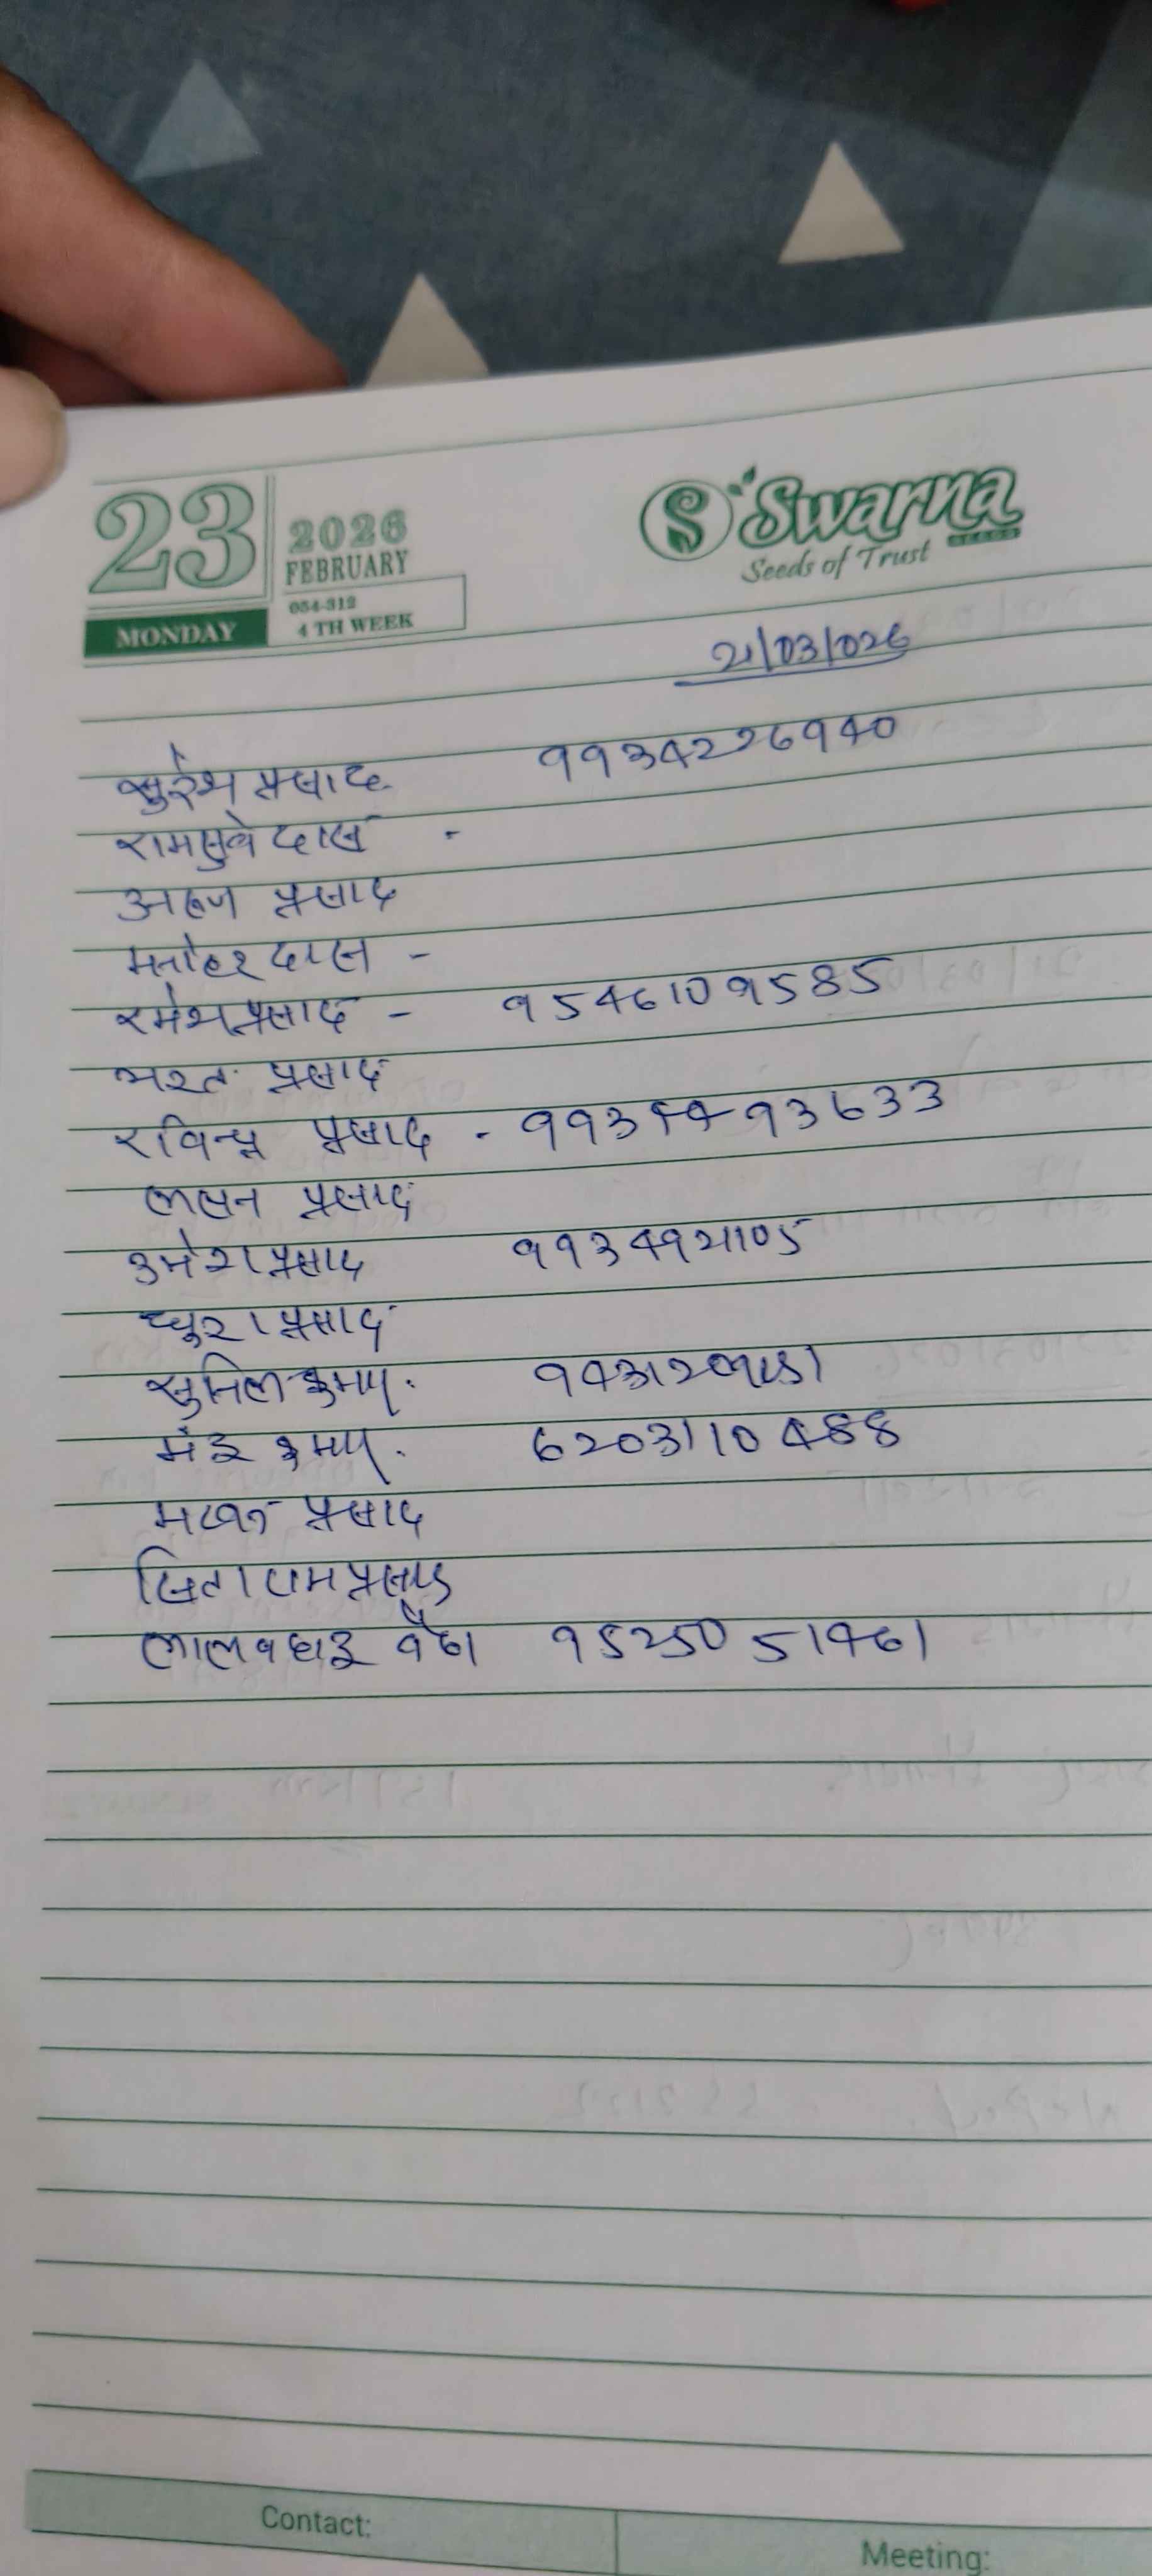 23
2026
FEBRUARY
054-312
4 TH WEEK
MONDAY
Swarna
SEEDS
Seeds of Trust
21/03/026
सुरेश प्रसाद 9934226940
रामसुवे दास -
अरूण प्रसाद
मनोहर दास -
रमेश प्रसाद - 9546109585
भरत प्रसाद
रविन्द्र प्रसाद - 9934493633
प्रसाद
उमेश प्रसाद 9934921105
प्रसाद
सुनिल कुमार.
कुमार. 6203110488
प्रसाद
सिताराम प्रसाद
लाल बहादुर 9525051461
Contact:
Meeting: